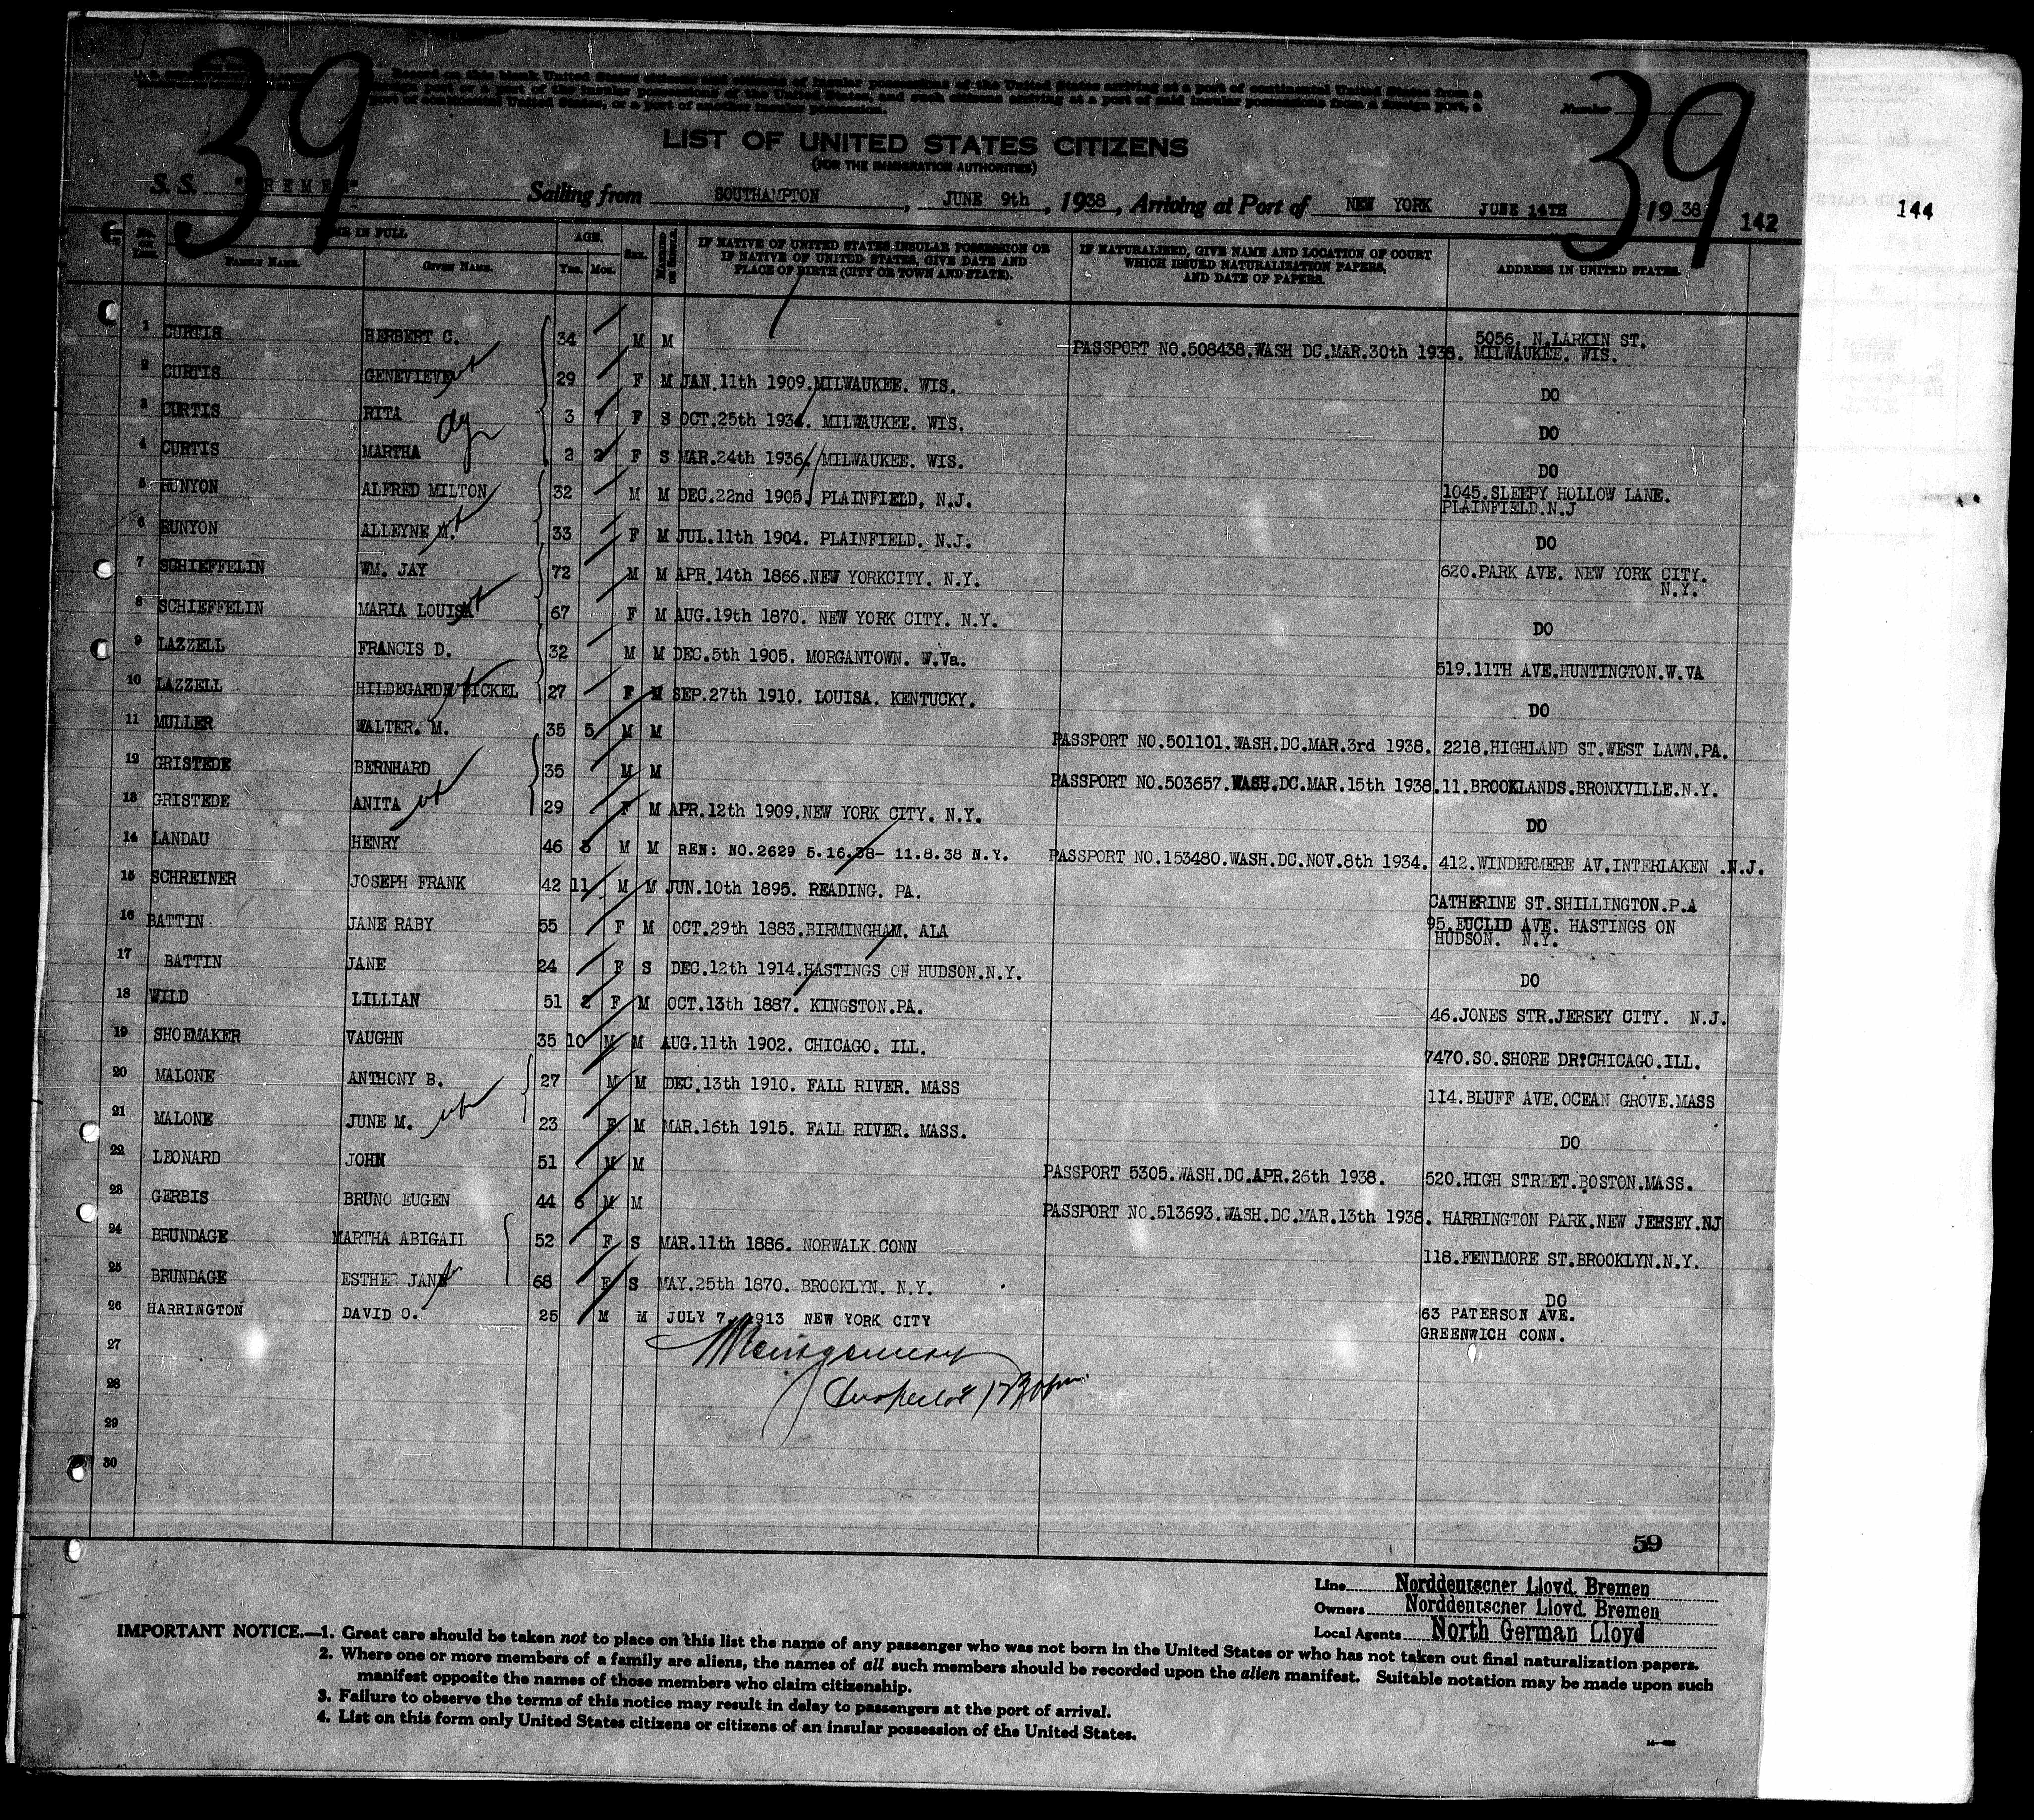 39
39
Number
LIST OF UNITED STATES CITIZENS
(FOR THE IMMIGRATION AUTHORITIES)
S. S. "BREMEN" Sailing from SOUTHAMPTON, JUNE 9th, 1938, Arriving at Port of NEW YORK JUNE 14TH 1938
142
144
NAME IN FULL AGE. SEX. MARRIED OR SINGLE
FAMILY NAME. GIVEN NAME. Yrs. Mos.
IF NATIVE OF UNITED STATES INSULAR POSSESSION OR IF NATIVE OF UNITED STATES, GIVE DATE AND PLACE OF BIRTH (CITY OR TOWN AND STATE).
IF NATURALIZED, GIVE NAME AND LOCATION OF COURT WHICH ISSUED NATURALIZATION PAPERS, AND DATE OF PAPERS.
ADDRESS IN UNITED STATES.
1 CURTIS HERBERT C. 34 M M PASSPORT NO.508438.WASH DC.MAR.30th 1938. 5056. N.LARKIN ST. MILWAUKEE. WIS.
2 CURTIS GENEVIEVE 29 F M JAN.11th 1909.MILWAUKEE. WIS. DO
3 CURTIS RITA 3 7 F S OCT.25th 1934. MILWAUKEE. WIS. DO
4 CURTIS MARTHA 2 2 F S MAR.24th 1936. MILWAUKEE. WIS. DO
5 RUNYON ALFRED MILTON 32 M M DEC.22nd 1905. PLAINFIELD, N.J. 1045.SLEEPY HOLLOW LANE. PLAINFIELD.N.J
6 RUNYON ALLEYNE M. 33 F M JUL.11th 1904. PLAINFIELD. N.J. DO
7 SCHIEFFELIN WM. JAY 72 M M APR.14th 1866.NEW YORKCITY. N.Y. 620.PARK AVE. NEW YORK CITY. N.Y.
8 SCHIEFFELIN MARIA LOUISA 67 F M AUG.19th 1870. NEW YORK CITY. N.Y. DO
9 LAZZELL FRANCIS D. 32 M M DEC.5th 1905. MORGANTOWN. W.Va. 519.11TH AVE.HUNTINGTON.W.VA
10 LAZZELL HILDEGARDE BICKEL 27 F M SEP.27th 1910. LOUISA. KENTUCKY. DO
11 MULLER WALTER. M. 35 5 M M PASSPORT NO.501101.WASH.DC.MAR.3rd 1938. 2218.HIGHLAND ST.WEST LAWN.PA.
12 GRISTEDE BERNHARD 35 M M PASSPORT NO.503657.WASH.DC.MAR.15th 1938. 11.BROOKLANDS.BRONXVILLE.N.Y.
13 GRISTEDE ANITA 29 F M APR.12th 1909.NEW YORK CITY. N.Y. DO
14 LANDAU HENRY 46 3 M M REN: NO.2629 5.16.38- 11.8.38 N.Y. PASSPORT NO.153480.WASH.DC.NOV.8th 1934. 412.WINDERMERE AV.INTERLAKEN .N.J.
15 SCHREINER JOSEPH FRANK 42 11 M M JUN.10th 1895. READING. PA. CATHERINE ST.SHILLINGTON.P.A
16 BATTIN JANE RABY 55 F M OCT.29th 1883.BIRMINGHAM. ALA 95.EUCLID AVE. HASTINGS ON HUDSON. N.Y.
17 BATTIN JANE 24 F S DEC.12th 1914.HASTINGS ON HUDSON.N.Y. DO
18 WILD LILLIAN 51 2 F M OCT.13th 1887. KINGSTON.PA. 46.JONES STR.JERSEY CITY. N.J.
19 SHOEMAKER VAUGHN 35 10 M M AUG.11th 1902. CHICAGO. ILL. 7470.SO.SHORE DR.CHICAGO.ILL.
20 MALONE ANTHONY B. 27 M M DEC.13th 1910. FALL RIVER. MASS 114.BLUFF AVE.OCEAN GROVE.MASS
21 MALONE JUNE M. 23 F M MAR.16th 1915. FALL RIVER. MASS. DO
22 LEONARD JOHN 51 M M PASSPORT 5305.WASH.DC.APR.26th 1938. 520.HIGH STREET.BOSTON.MASS.
23 GERBIS BRUNO EUGEN 44 6 M M PASSPORT NO.513693.WASH.DC.MAR.13th 1938. HARRINGTON PARK.NEW JERSEY.NJ
24 BRUNDAGE MARTHA ABIGAIL 52 F S MAR.11th 1886. NORWALK.CONN 118.FENIMORE ST.BROOKLYN.N.Y.
25 BRUNDAGE ESTHER JANE 68 F S MAY.25th 1870. BROOKLYN. N.Y. DO
26 HARRINGTON DAVID O. 25 M M JULY 7, 1913 NEW YORK CITY 63 PATERSON AVE. GREENWICH CONN.
27
Montgomery
28
Inspector
29
30
59
Line Norddeutscher Lloyd. Bremen
Owners Norddeutscher Lloyd. Bremen
Local Agents North German Lloyd
IMPORTANT NOTICE.—1. Great care should be taken not to place on this list the name of any passenger who was not born in the United States or who has not taken out final naturalization papers.
2. Where one or more members of a family are aliens, the names of all such members should be recorded upon the alien manifest. Suitable notation may be made upon such
manifest opposite the names of those members who claim citizenship.
3. Failure to observe the terms of this notice may result in delay to passengers at the port of arrival.
4. List on this form only United States citizens or citizens of an insular possession of the United States.